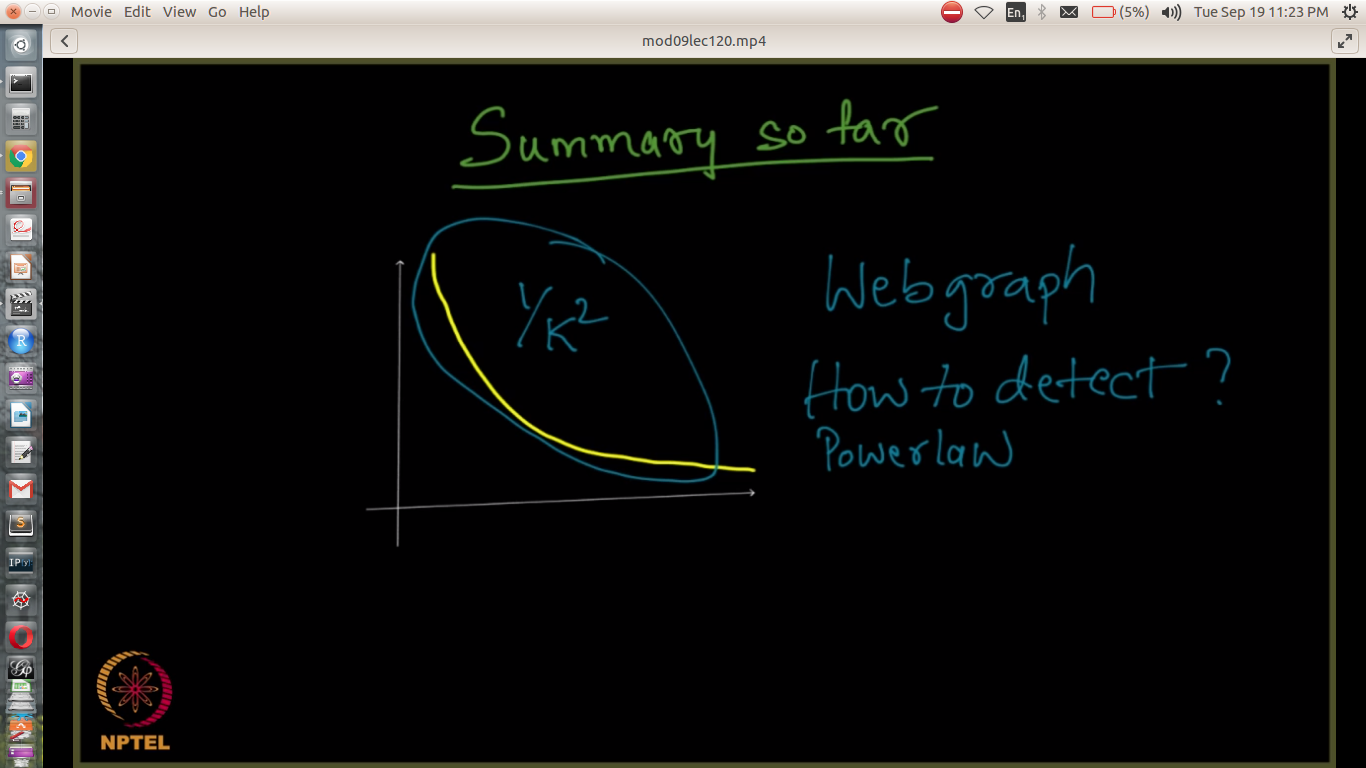 Movie Edit View Go Help En1 (5%) Tue Sep 19 11:23 PM
mod09lec120.mp4
Summary so far
1/K2
Webgraph
How to detect ?
Powerlaw
R
S
IP[y]
NPTEL